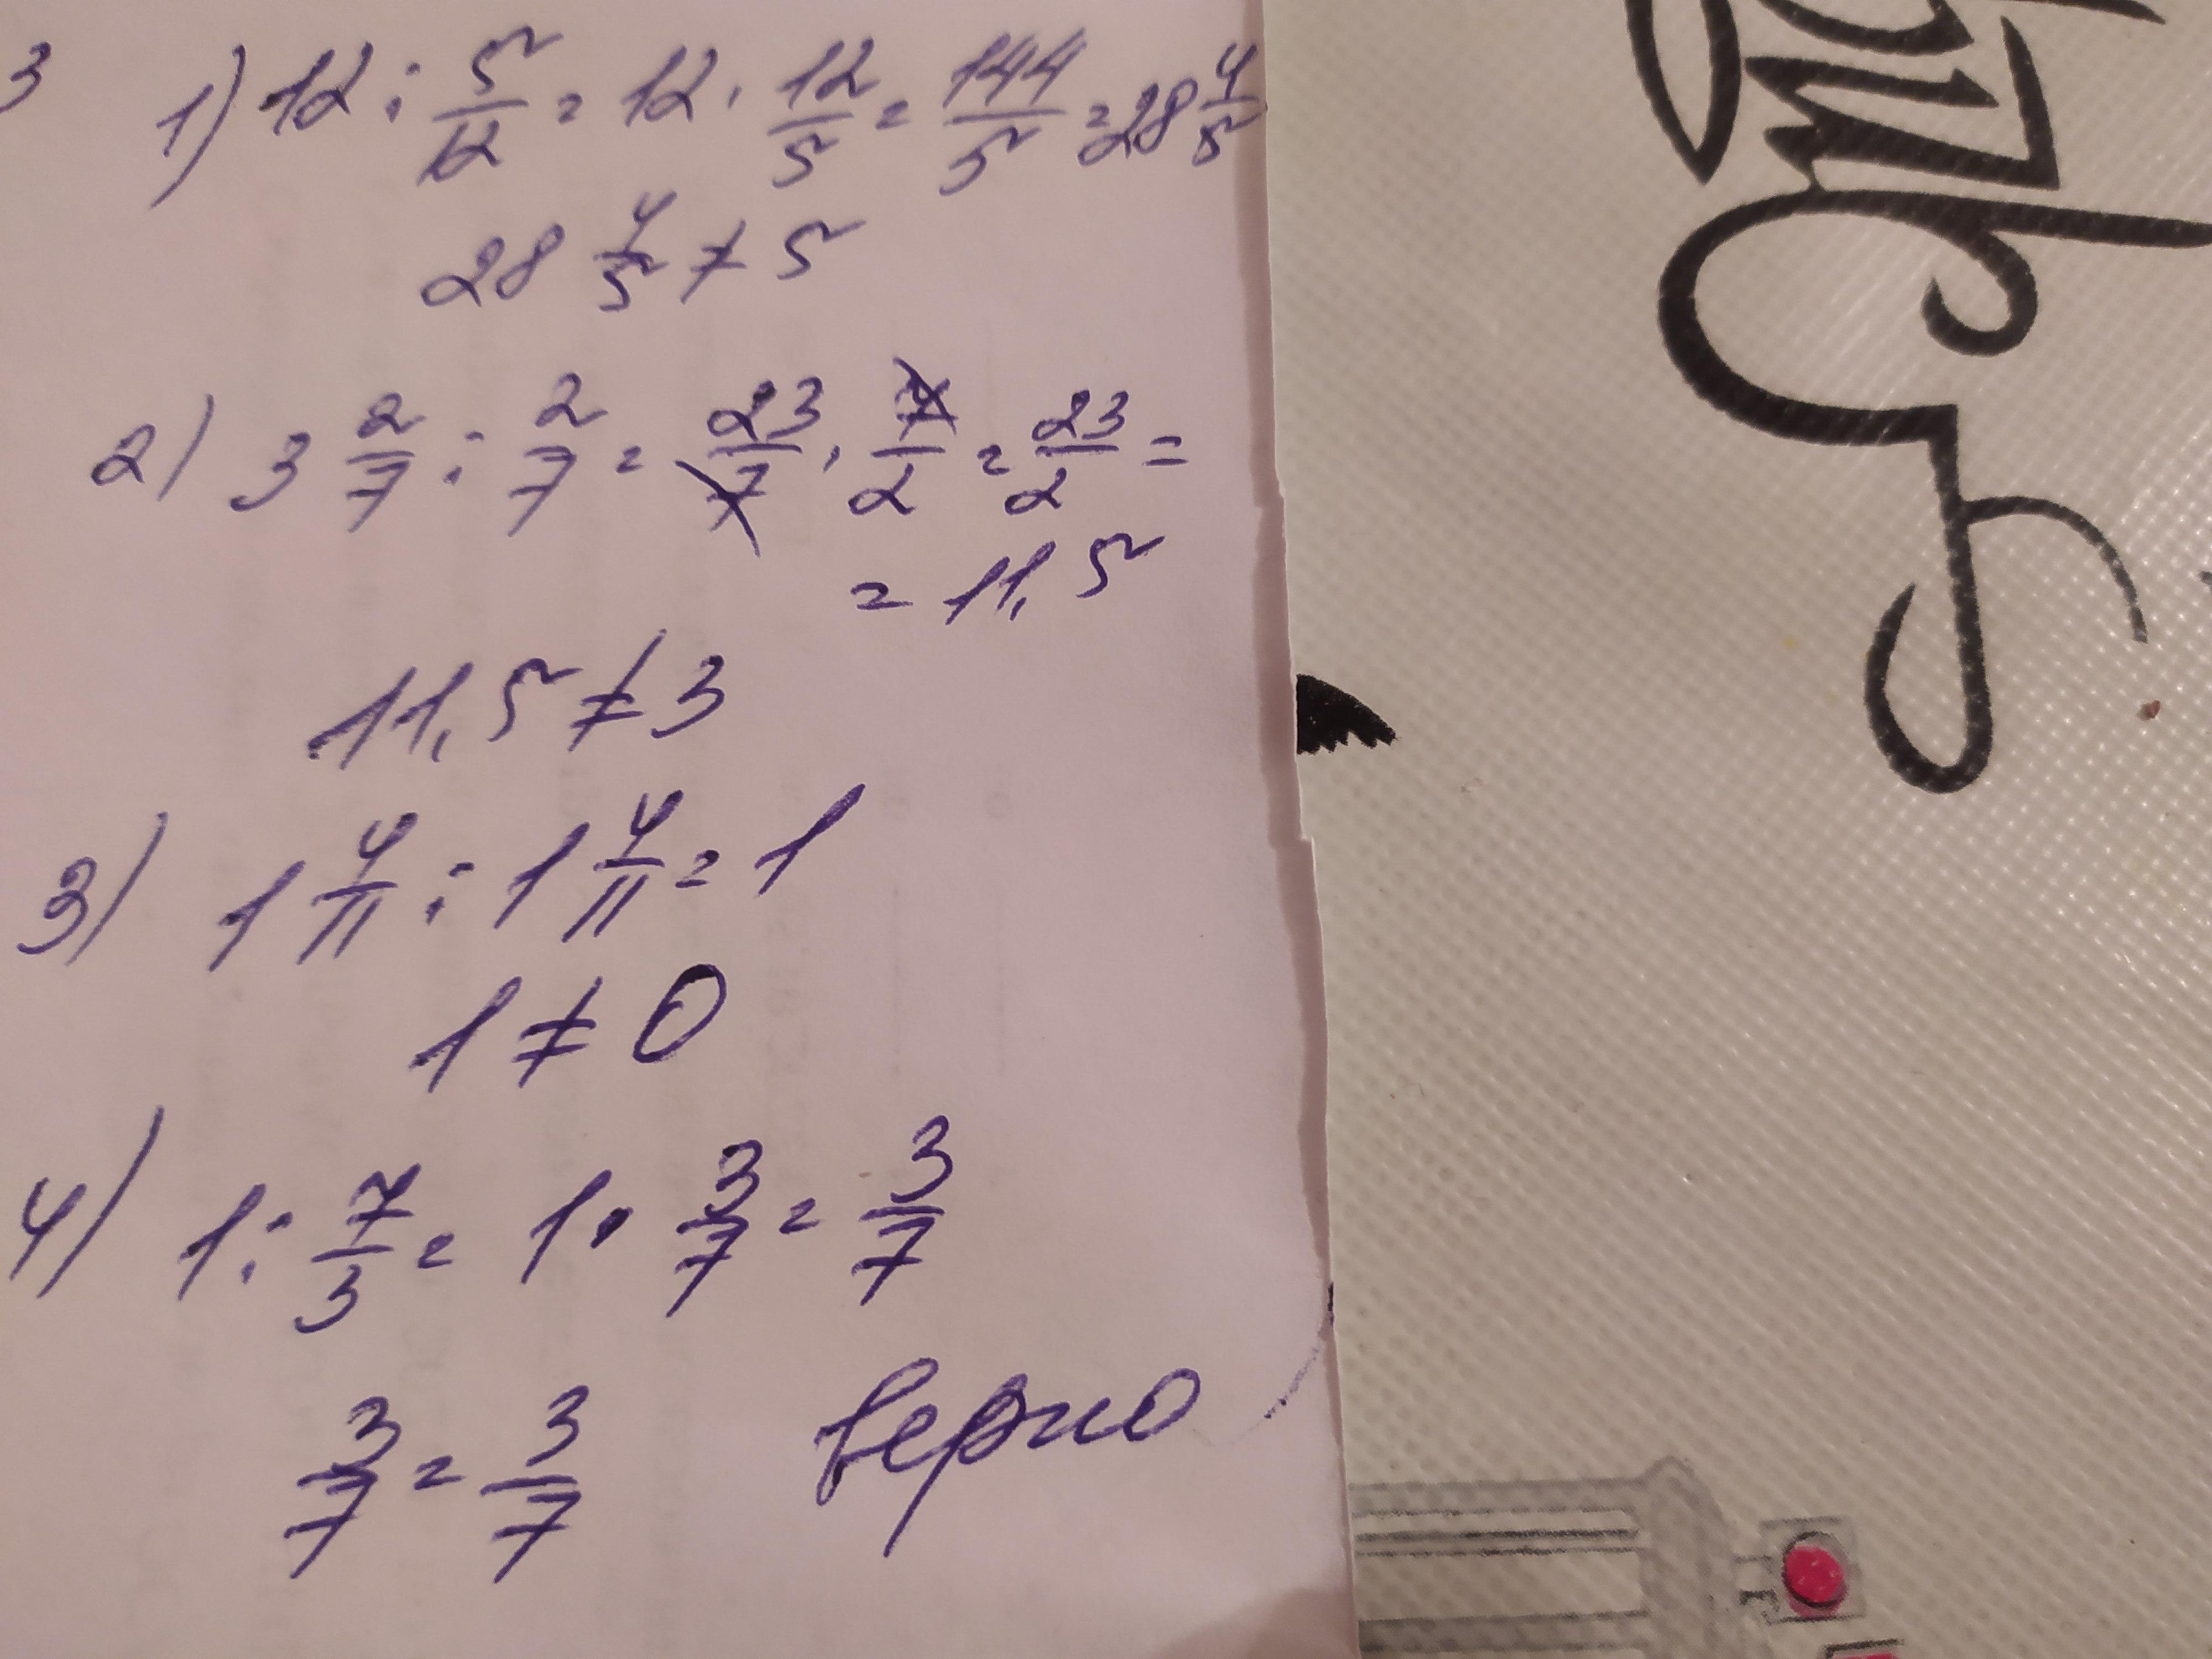 3 1) 12 : 5/12 = 12 · 12/5 = 144/5 = 28 4/5
28 4/5 ≠ 5
2) 3 2/7 : 2/7 = 23/7 · 7/2 = 23/2 =
= 11,5
11,5 ≠ 3
3) 1 4/11 : 1 4/11 = 1
1 ≠ 0
4) 1 : 7/3 = 1 · 3/7 = 3/7
3/7 = 3/7 верно